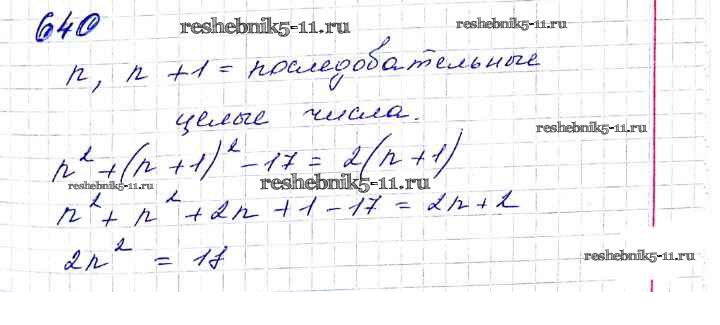 640
reshebnik5-11.ru
reshebnik5-11.ru
n, n + 1 = последовательные
целые числа.
reshebnik5-11.ru
n² + (n + 1)² - 17 = 2(n + 1)
reshebnik5-11.ru
reshebnik5-11.ru
n² + n² + 2n + 1 - 17 = 2n + 2
2n² = 18
reshebnik5-11.ru